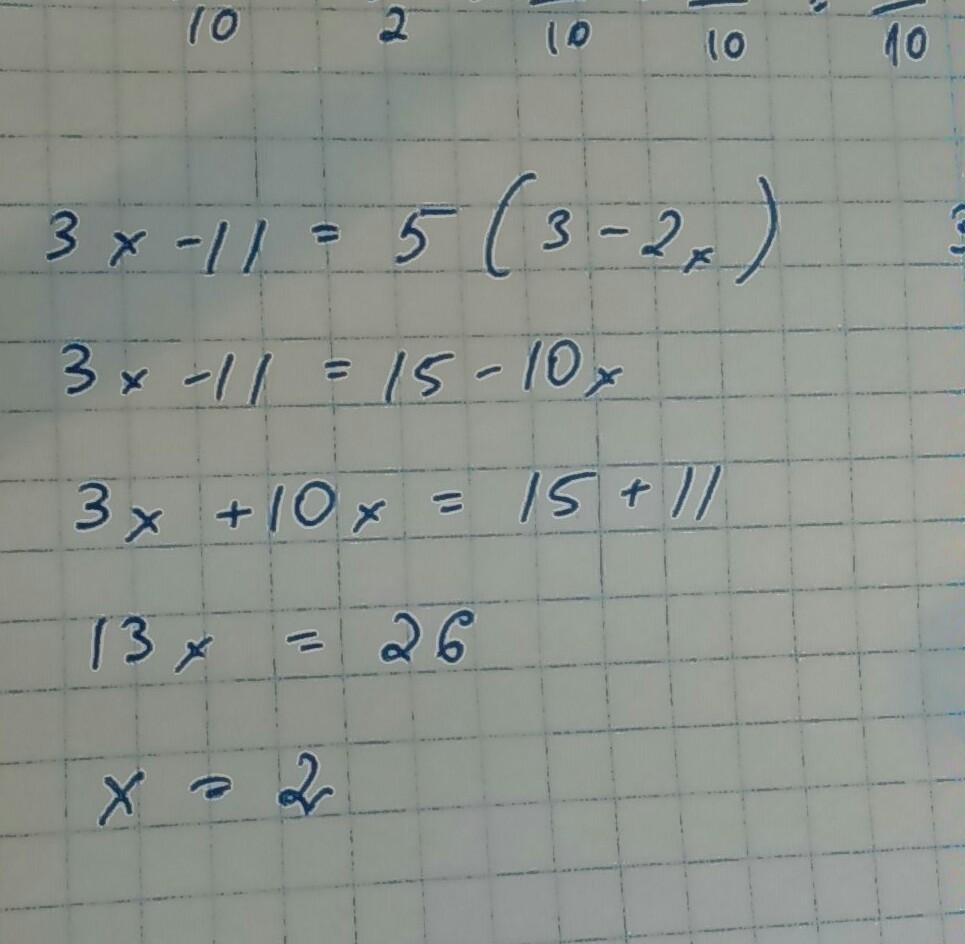 10 2 10 10 10
3x - 11 = 5 (3 - 2x)
3x - 11 = 15 - 10x
3x + 10x = 15 + 11
13x = 26
x = 2